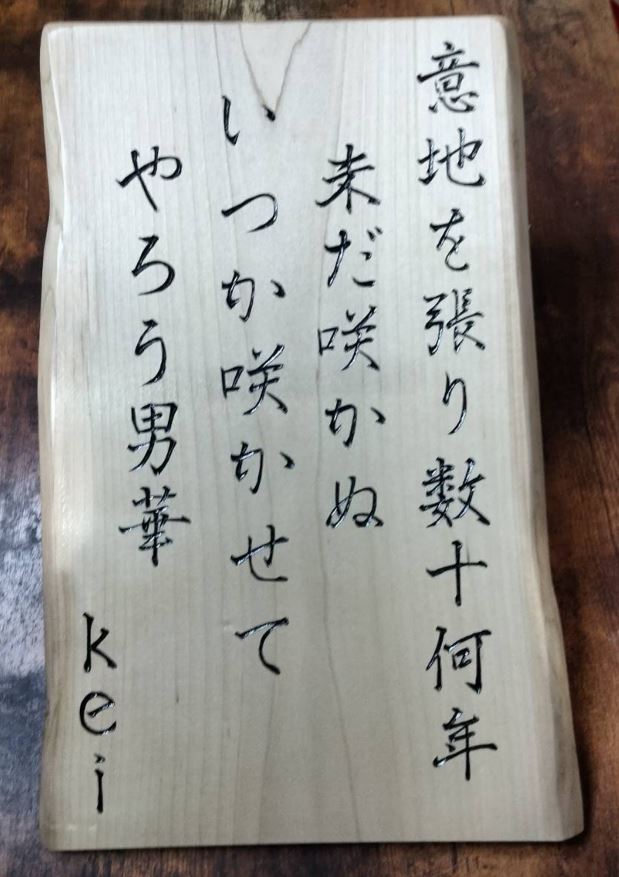 意地を張り数十何年
未だ咲かぬ
いつか咲かせて
やろう男華
kei